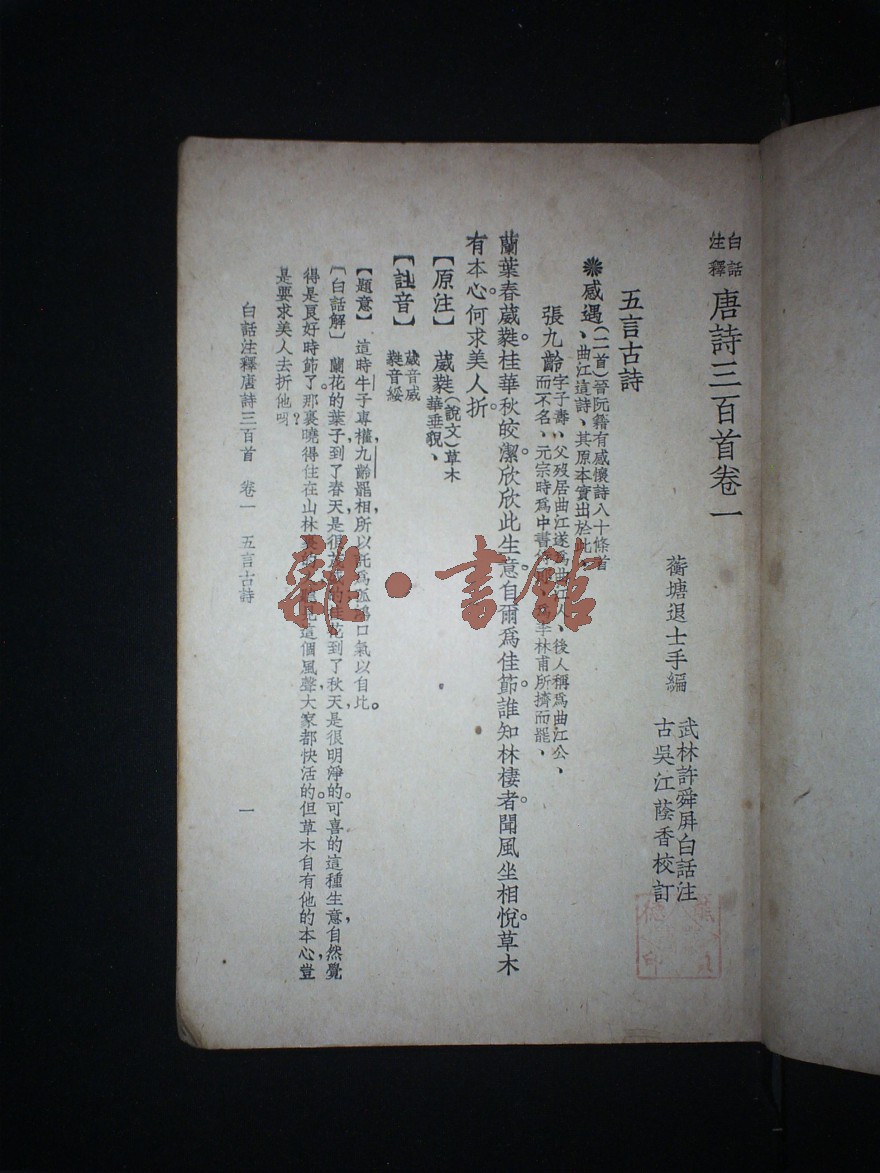 白話
注釋
唐詩三百首卷一
蘅塘退士手編
武林許舜屛白話注
古吳江蔭香校訂
五言古詩
❋感遇(二首)晉阮籍有感懷詩八十餘首
、曲江這詩、其原本實出於此、
張九齡字子壽、父歿居曲江遂爲曲江人、後人稱爲曲江公、
而不名、元宗時爲中書 李林甫所擠而罷、
蘭葉春葳蕤。桂華秋皎潔。欣欣此生意。自爾爲佳節。誰知林棲者。聞風坐相悅。草木
有本心。何求美人折。
【原注】 葳蕤(說文)草木
華垂貌、
【註音】 葳音威
蕤音綏
【題意】 這時牛子專權,九齡罷相,所以託爲孤鴻口氣以自比。
〔白話解〕 蘭花的葉子,到了春天,是很 的,桂花到了秋天,是很明淨的。可喜的這種生意,自然覺
得是良好時節了。那裏曉得住在山林 這個風聲,大家都快活的。但草木自有他的本心,豈
是要求美人去折他啊?
白話注釋唐詩三百首 卷一 五言古詩 一
雜·書館